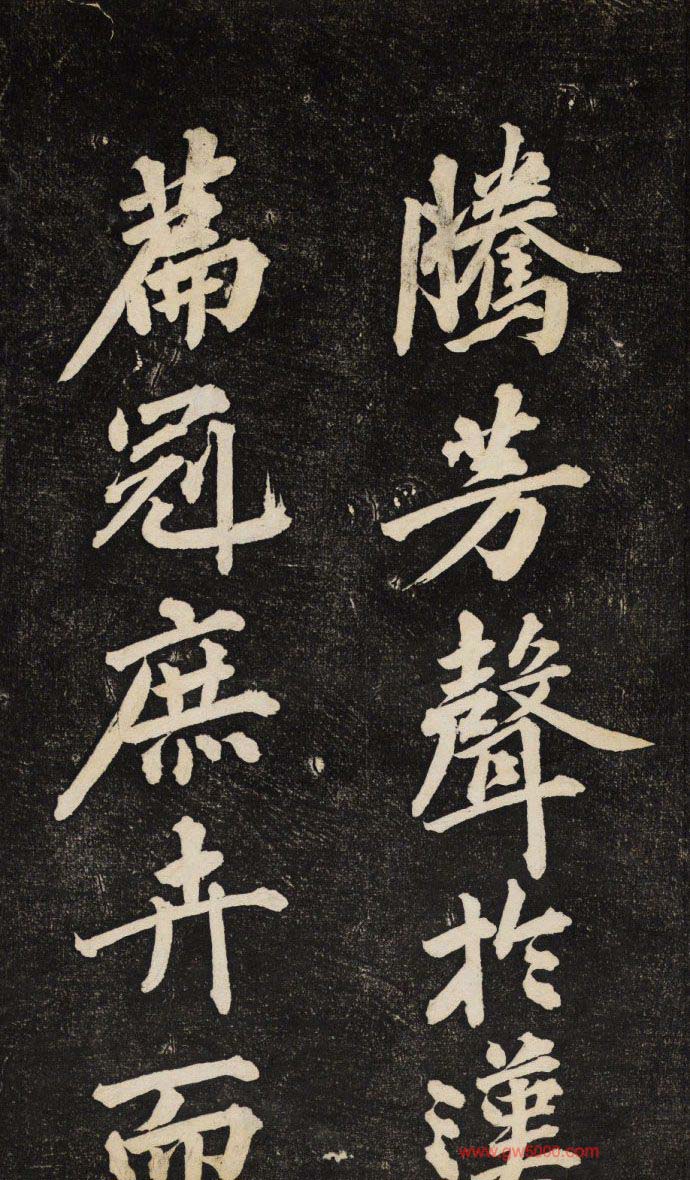 騰芳聲於漢
篇冠庶卉而
www.gw5000.com